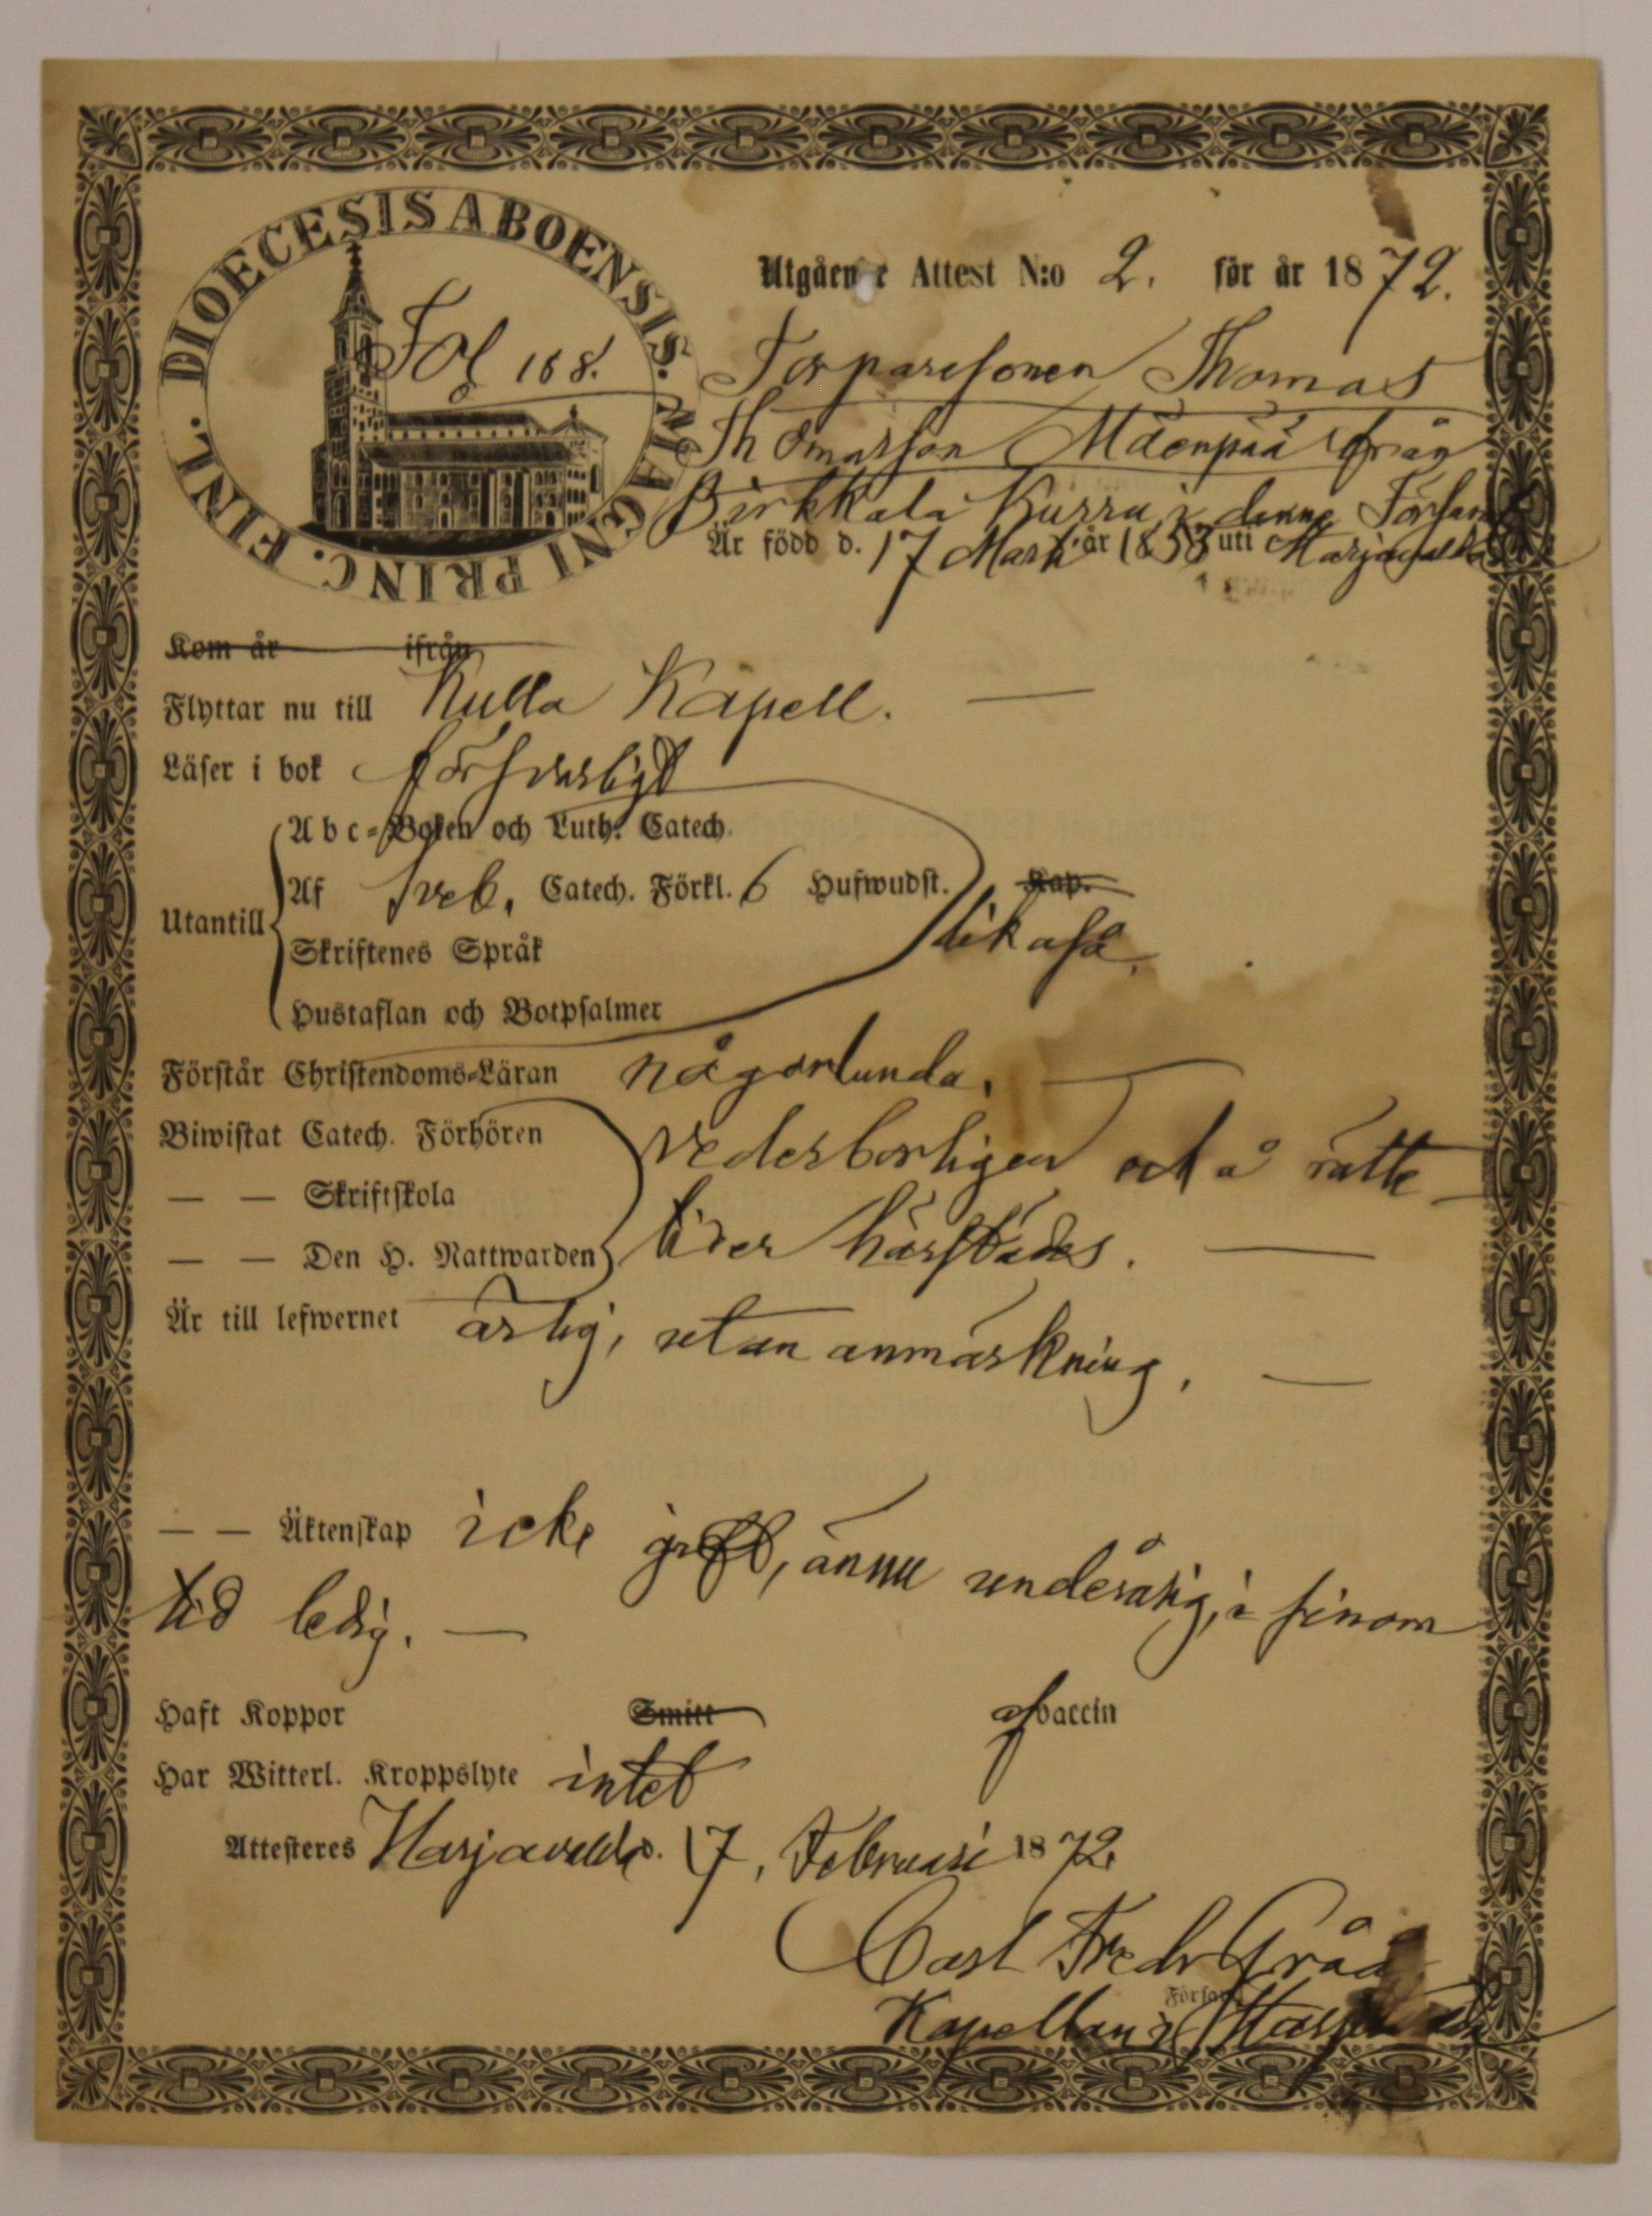 DIOECESIS ABOENSIS. MAGNI PRINC. FINL.
Fol 168.
Utgående Attest N:o 2. för år 1872.
Torparesonen Thomas
Thomasson Mäenpää från
Birkkala Kurru i denna Församl
Är född d. 17 Mars år 1853 uti Harjavalda
Kom år ifrån
Flyttar nu till Kulla Kapell.
Läser i bok försvarligt
Abc-Boken och Luth. Catech.
Af Sveb. Catech. Förkl. 6 Hufwudst. Kap.
Utantill
likaså.
Skriftenes Språk
Hustaflan och Botpsalmer
Förstår Christendoms-Läran någorlunda.
Biwistat Catech. Förhören vederborligen och å rätte
— — Skriftskola
— — Den H. Nattwarden tider härstädes.
Är till lefwernet ärlig, utan anmärkning.
— — Äktenskap icke gift, ännu underårig, i sinom
tid ledig.
Haft Koppor Smitt vaccin
Har Witterl. Kroppslyte intet
Attesteres Harjavalda d. 17. Februari 1872.
Carl Fredr Gråå
Församl.
Kapellan i Harjavalda